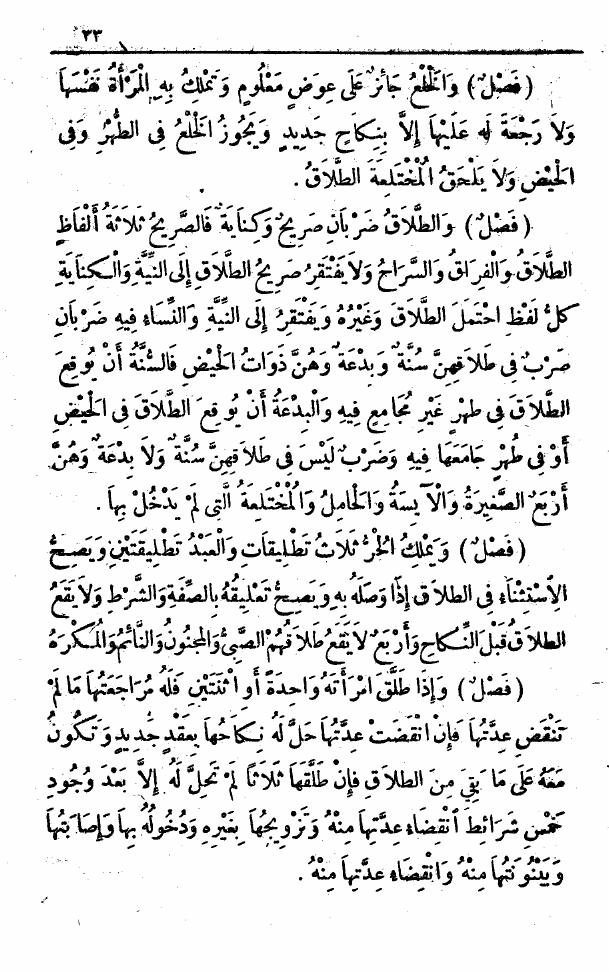 ٣٣
(فَصْلٌ) وَالْخُلْعُ جَائِزٌ عَلَى عِوَضٍ مَعْلُومٍ وَتَمْلِكُ بِهِ الْمَرْأَةُ نَفْسَهَا
وَلاَ رَجْعَةَ لَهُ عَلَيْهَا إِلاَّ بِنِكَاحٍ جَدِيدٍ وَيَجُوزُ الْخُلْعُ فِى الطُّهْرِ وَفِى
الْحَيْضِ وَلاَ يَلْحَقُ الْمُخْتَلِعَةَ الطَّلاَقُ .
(فَصْلٌ) وَالطَّلاَقُ ضَرْبَانِ صَرِيحٌ وَكِنَايَةٌ فَالصَّرِيحُ ثَلاَثَةُ أَلْفَاظٍ
الطَّلاَقُ وَالْفِرَاقُ وَالسَّرَاحُ وَلاَ يَفْتَقِرُ صَرِيحُ الطَّلاَقِ إِلَى النِّيَّةِ وَالْكِنَايَةِ
كُلُّ لَفْظٍ احْتَمَلَ الطَّلاَقَ وَغَيْرُهُ وَيَفْتَقِرُ إِلَى النِّيَّةِ وَالنِّسَاءُ فِيهِ ضَرْبَانِ
ضَرْبٌ فِى طَلاَقِهِنَّ سُنَّةٌ وَبِدْعَةٌ وَهُنَّ ذَوَاتُ الْحَيْضِ فَالسُّنَّةُ أَنْ يُوقِعَ
الطَّلاَقَ فِى طُهْرٍ غَيْرِ مُجَامِعٍ فِيهِ وَالْبِدْعَةُ أَنْ يُوقِعَ الطَّلاَقَ فِى الْحَيْضِ
أَوْ فِى طُهْرٍ جَامَعَهَا فِيهِ وَضَرْبٌ لَيْسَ فِى طَلاَقِهِنَّ سُنَّةٌ وَلاَ بِدْعَةٌ وَهُنَّ
أَرْبَعٌ الصَّغِيرَةُ وَالْآيِسَةُ وَالْحَامِلُ وَالْمُخْتَلِعَةُ الَّتِى لَمْ يَدْخُلْ بِهَا .
(فَصْلٌ) وَيَمْلِكُ الْحُرُّ ثَلاَثَ تَطْلِيقَاتٍ وَالْعَبْدُ تَطْلِيقَتَيْنِ وَيَصِحُّ
الِاسْتِثْنَاءُ فِى الطَّلاَقِ إِذَا وَصَلَهُ بِهِ وَيَصِحُّ تَعْلِيقُهُ بِالصِّفَةِ وَالشَّرْطِ وَلاَ يَقَعُ
الطَّلاَقُ قَبْلَ النِّكَاحِ وَأَرْبَعٌ لاَ يَقَعُ طَلاَقُهُمْ الصَّبِىُّ وَالْمَجْنُونُ وَالنَّائِمُ وَالْمُكْرَهُ
(فَصْلٌ) وَإِذَا طَلَّقَ امْرَأَتَهُ وَاحِدَةً أَوِ اثْنَتَيْنِ فَلَهُ مُرَاجَعَتُهَا مَا لَمْ
تَنْقَضِ عِدَّتُهَا فَإِنْ انْقَضَتْ عِدَّتُهَا حَلَّ لَهُ نِكَاحُهَا بِعَقْدٍ جَدِيدٍ وَتَكُونُ
مَعَهُ عَلَى مَا بَقِىَ مِنَ الطَّلاَقِ فَإِنْ طَلَّقَهَا ثَلاَثًا لَمْ تَحِلَّ لَهُ إِلاَّ بَعْدَ وُجُودِ
خَمْسِ شَرَائِطَ انْقِضَاءِ عِدَّتِهَا مِنْهُ وَتَزْوِيجُهَا بِغَيْرِهِ وَدُخُولُهُ بِهَا وَإِصَابَتُهَا
وَبَيْنُونَتُهَا مِنْهُ وَانْقِضَاءُ عِدَّتِهَا مِنْهُ .